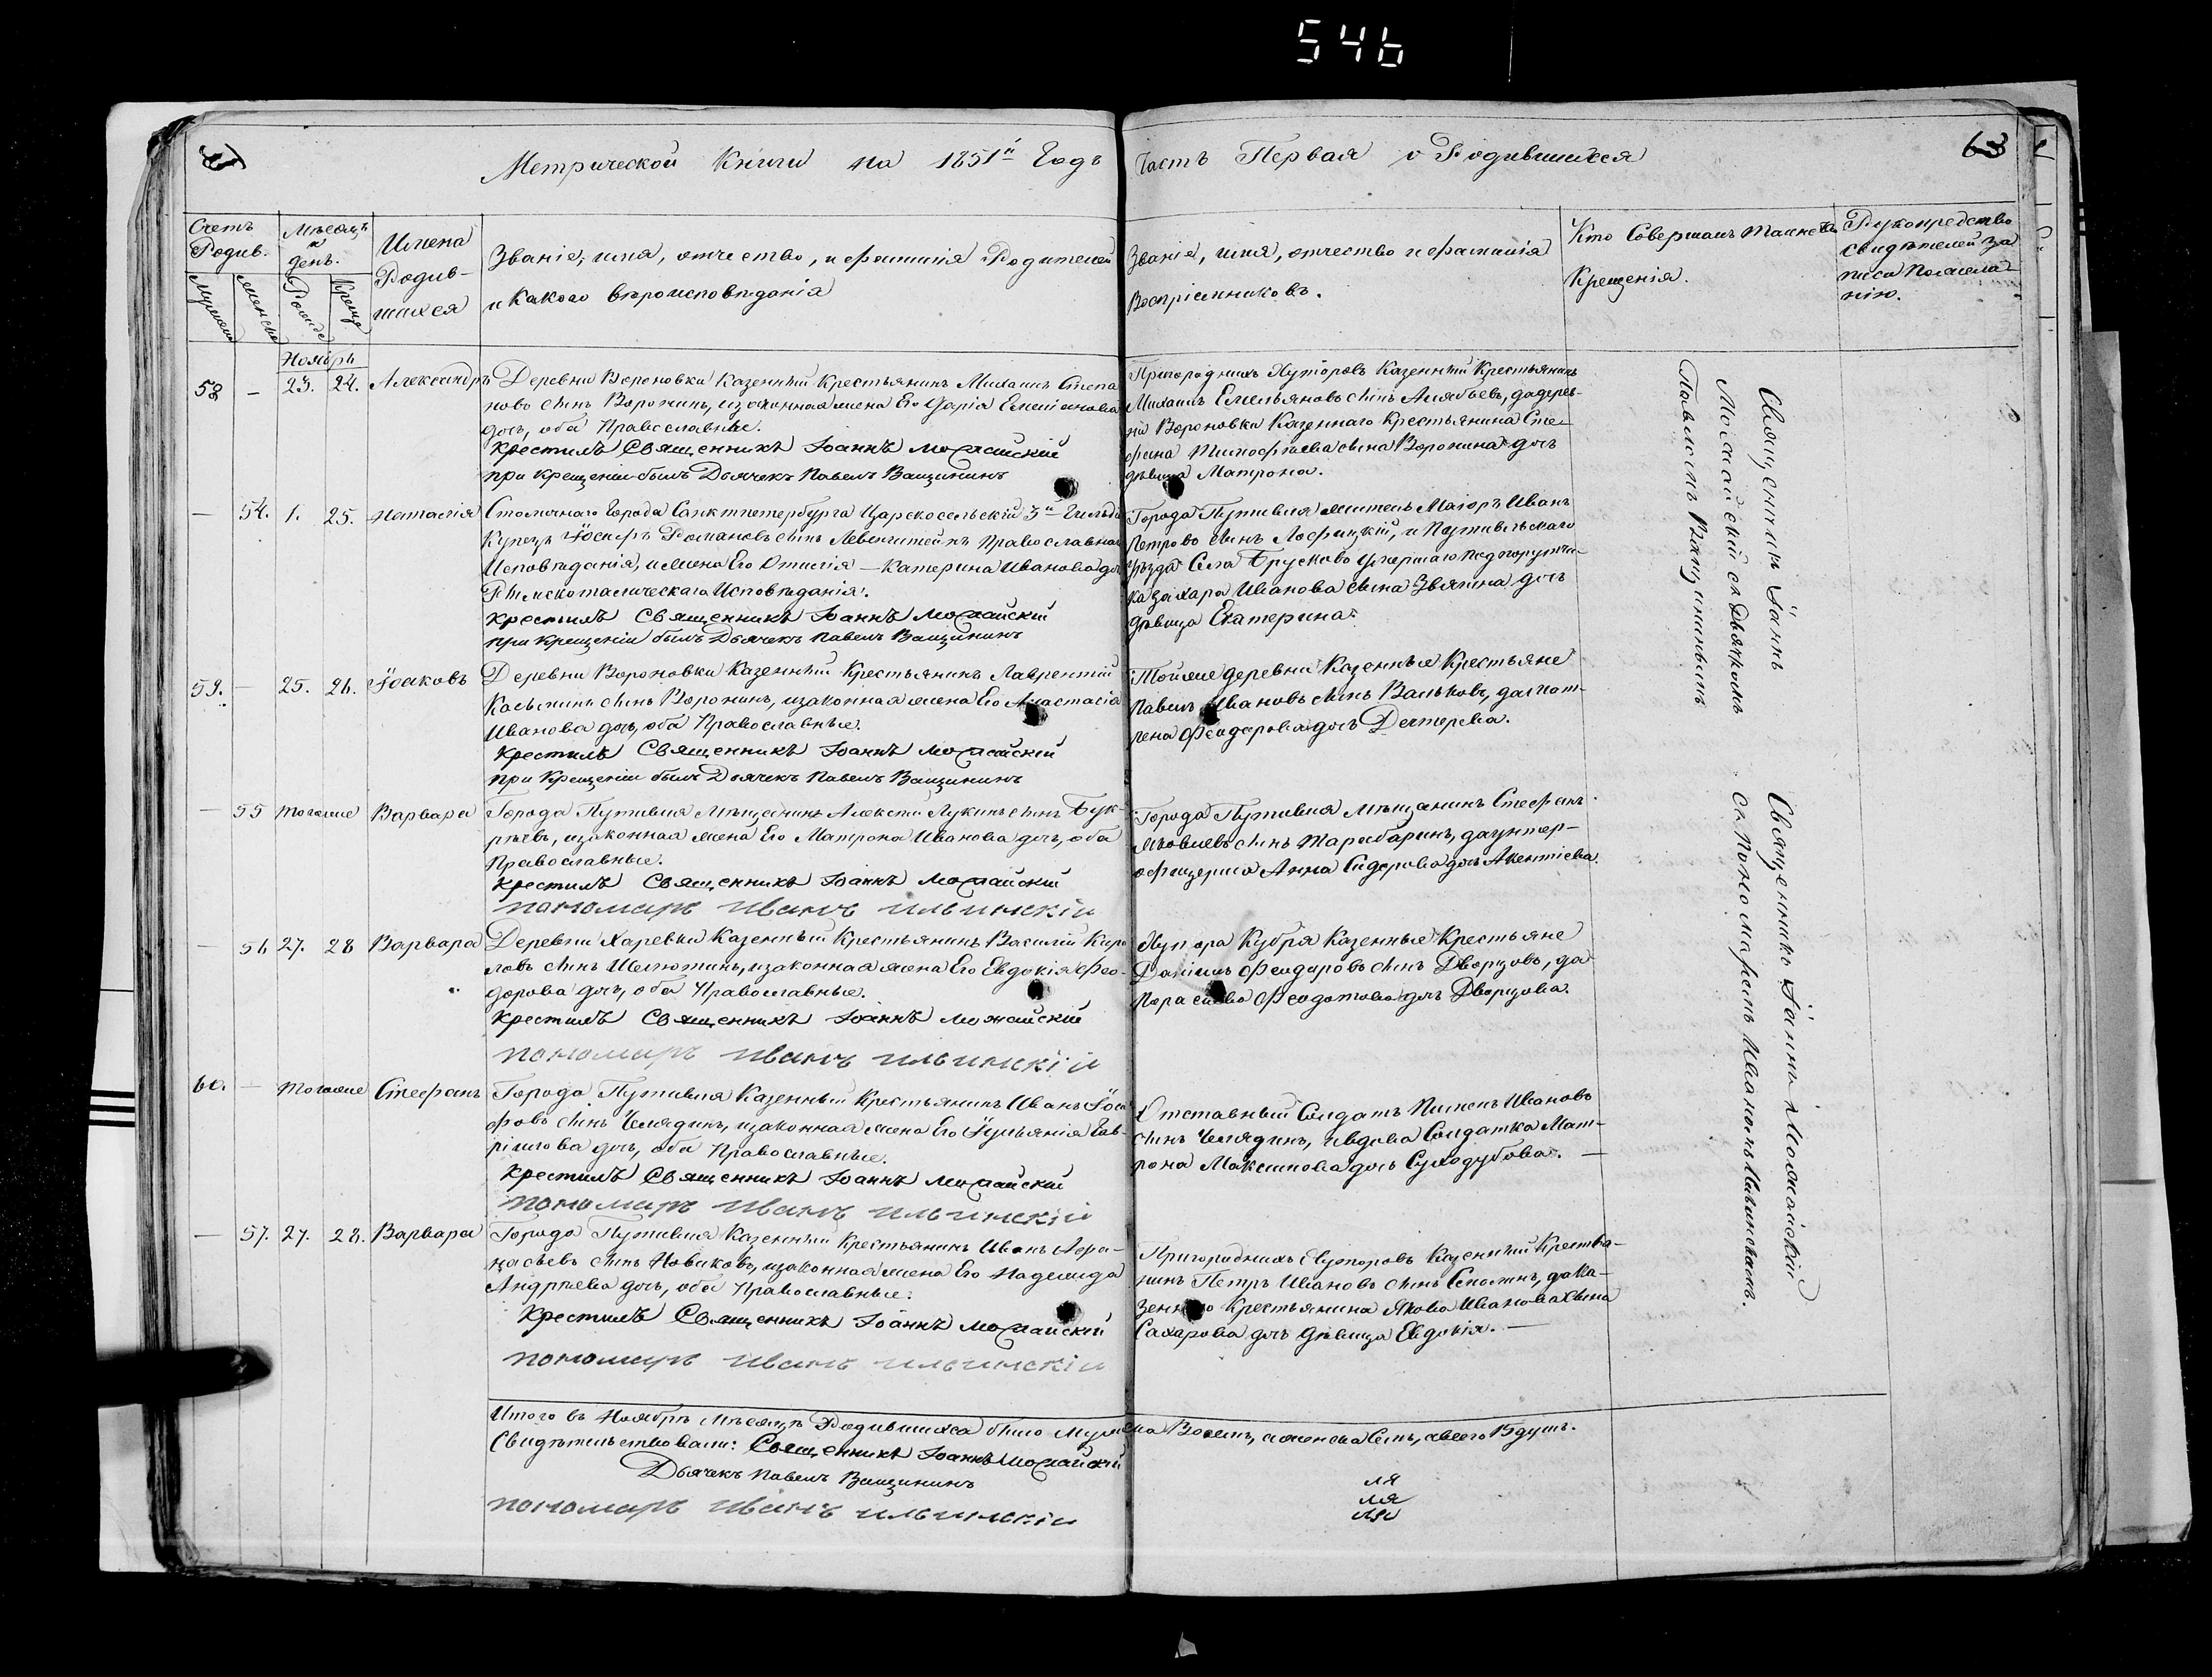 546
Метрической Книги на 1851й Годъ Часть Первая о Родившихся
63
Счетъ Родив.
Мужеска
Женска
Мѣсяцъ и день.
Рожде
Креще
Имена Родив-
шихся
Званіе, имя, отчество, и фамилія Родителей
и какого вѣроисповѣданія
Званіе, имя, отчество и фамилія
Воспріемниковъ.
Кто Совершалъ Таинство
Крещенія.
свидѣтелей за
писи по желa-
нію.
Ноябрь
58 - 23. 24. Александръ
Деревни Вороновки Казенный Крестьянинъ Михаилъ Степа
новъ сынъ Воронинъ, и законная жена Его Дарія Емеліанова
дочь, оба Православные.
Крестилъ Священникъ ІоаннъМожайскій
при Крещеніи былъ Дьячекъ Павелъ Ващининъ
Пригородныхъ Хуторовъ Казенный Крестьянинъ
Михаилъ Емельяновъ сынъ Алябьевъ, да дерев-
ни Вороновки Казеннаго Крестьянина Сте-
фана Тимофѣева сына Воронина дочь
дѣвица Матрона.
— 54. 1. 25. Наталія
Столичнаго Города Санктпетербурга Царскосельскій 3й Гильди
Купецъ Іосифъ Романовъ сынъ Левенштейнъ Православнаго
Исповѣданія, и жена Его Отилія — Катерина Иванова дочь
Римскокатолическаго Исповѣданія.
Крестилъ Священникъ Іоаннъ Можайскій
при Крещеніи былъ Дьячекъ Павелъ Ващининъ
Города Путивля житель Маіоръ Иванъ
Петрова сынъ Лофицкій, и Путивльскаго
Уѣзда Села Брусково умершаго подпоручи-
ка Захара Иванова сына Звягина дочь
дѣвица Екатерина.
59. - 25. 26. Іоаковъ
Деревни Вороновки Казенный Крестьянинъ Лаврентій
Касьянинъ сынъ Воронинъ, и законная жена Его Анастасія
Иванова дочь, оба Православные.
Крестилъ Священникъ Іоаннъ Можайскій
при Крещеніи былъ Дьячекъ Павелъ Ващининъ
Той же деревни Казенные Крестьяне
Павелъ Ивановъ сынъ Вальковъ, да
Феодорова дочь Дегтерева.
— 55 того же Варвара
Города Путивля Мѣщанинъ Алексѣй Лукинъ сынъ Бук-
рѣевъ, и законная жена Его Матрона Иванова дочь, оба
Православные.
Крестилъ Священникъ Іоаннъ Можайскій
пономарь Иванъ Ильинскій
Города Путивля Мѣщанинъ Стефанъ
Яковлевъ сынъ Тарабаринъ, да унтер-
офицерша Анна Сидорова дочь Акентіева.
— 56 27. 28 Варвара
Деревни Харевки Казенный Крестьянинъ Василій Кири
ловъ сынъ Шелютинъ, и законная жена Его Евдокія Фео-
дорова дочь, оба Православные.
Крестилъ Священникъ Іоаннъ Можайскій
пономарь Иванъ Ильинскій
Хутора Кубря Казенные Крестьяне
Даніилъ Феодоровъ сынъ Дворцовъ, да
Параскева Феодотова дочь Дворцова.
60. — того же Стефанъ
Города Путивля Казенный Крестьянинъ Иванъ Іоси
фовъ сынъ Челядинъ, и законная жена Его Іуліанія Гав-
ріилова дочь, оба Православные.
Крестилъ Священникъ Іоаннъ Можайскій
пономарь Иванъ Ильинскій
Отставный Солдатъ Пименъ Ивановъ
сынъ Челядинъ, и вдова Солдатка Мат-
рона Максимова дочь Суходубова. —
— 57. 27. 28. Варвара
Города Путивля Казенный Крестьянинъ Иванъ Афа-
насьевъ сынъ Новиковъ, и законная жена Его Надежда
Андрѣева дочь, оба Православные.
Крестилъ Священникъ Іоаннъ Можайскій
пономарь Иванъ Ильинскій
Пригородныхъ Хуторовъ Казенный Крестья-
нинъ Петръ Ивановъ сынъ да Ка-
зеннаго Крестьянина Якова Иванова Сына
Сахарова дочь дѣвица Евдокія. —
Священникъ Іоаннъ
Можайскій съ Дьячкомъ
Павломъ Ващининымъ
Священникъ Іоаннъ Можайскій
съ Пономаремъ Иваномъ Ильинскимъ.
Итого въ Ноябрѣ мѣсяцѣ Родившихся было Мужеска Восемь, а женска Семь, а всего 15 душъ.
Свидѣтельствовали: Священникъ Іоаннъ Можайскій
Дьячекъ Павелъ Ващининъ
пономарь Иванъ Ильинскій